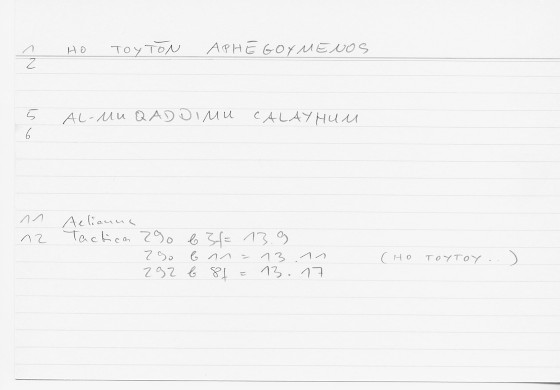 1 HO TOYTŌN APHĒGOYMENOS
2
5 AL-MUQADDIMU ʿALAYHUM
6
11 Aelianus
12 Tactica 290 b 3f = 13.9
290 b 11 = 13.11 (HO TOYTOY..)
292 b 8f = 13.17